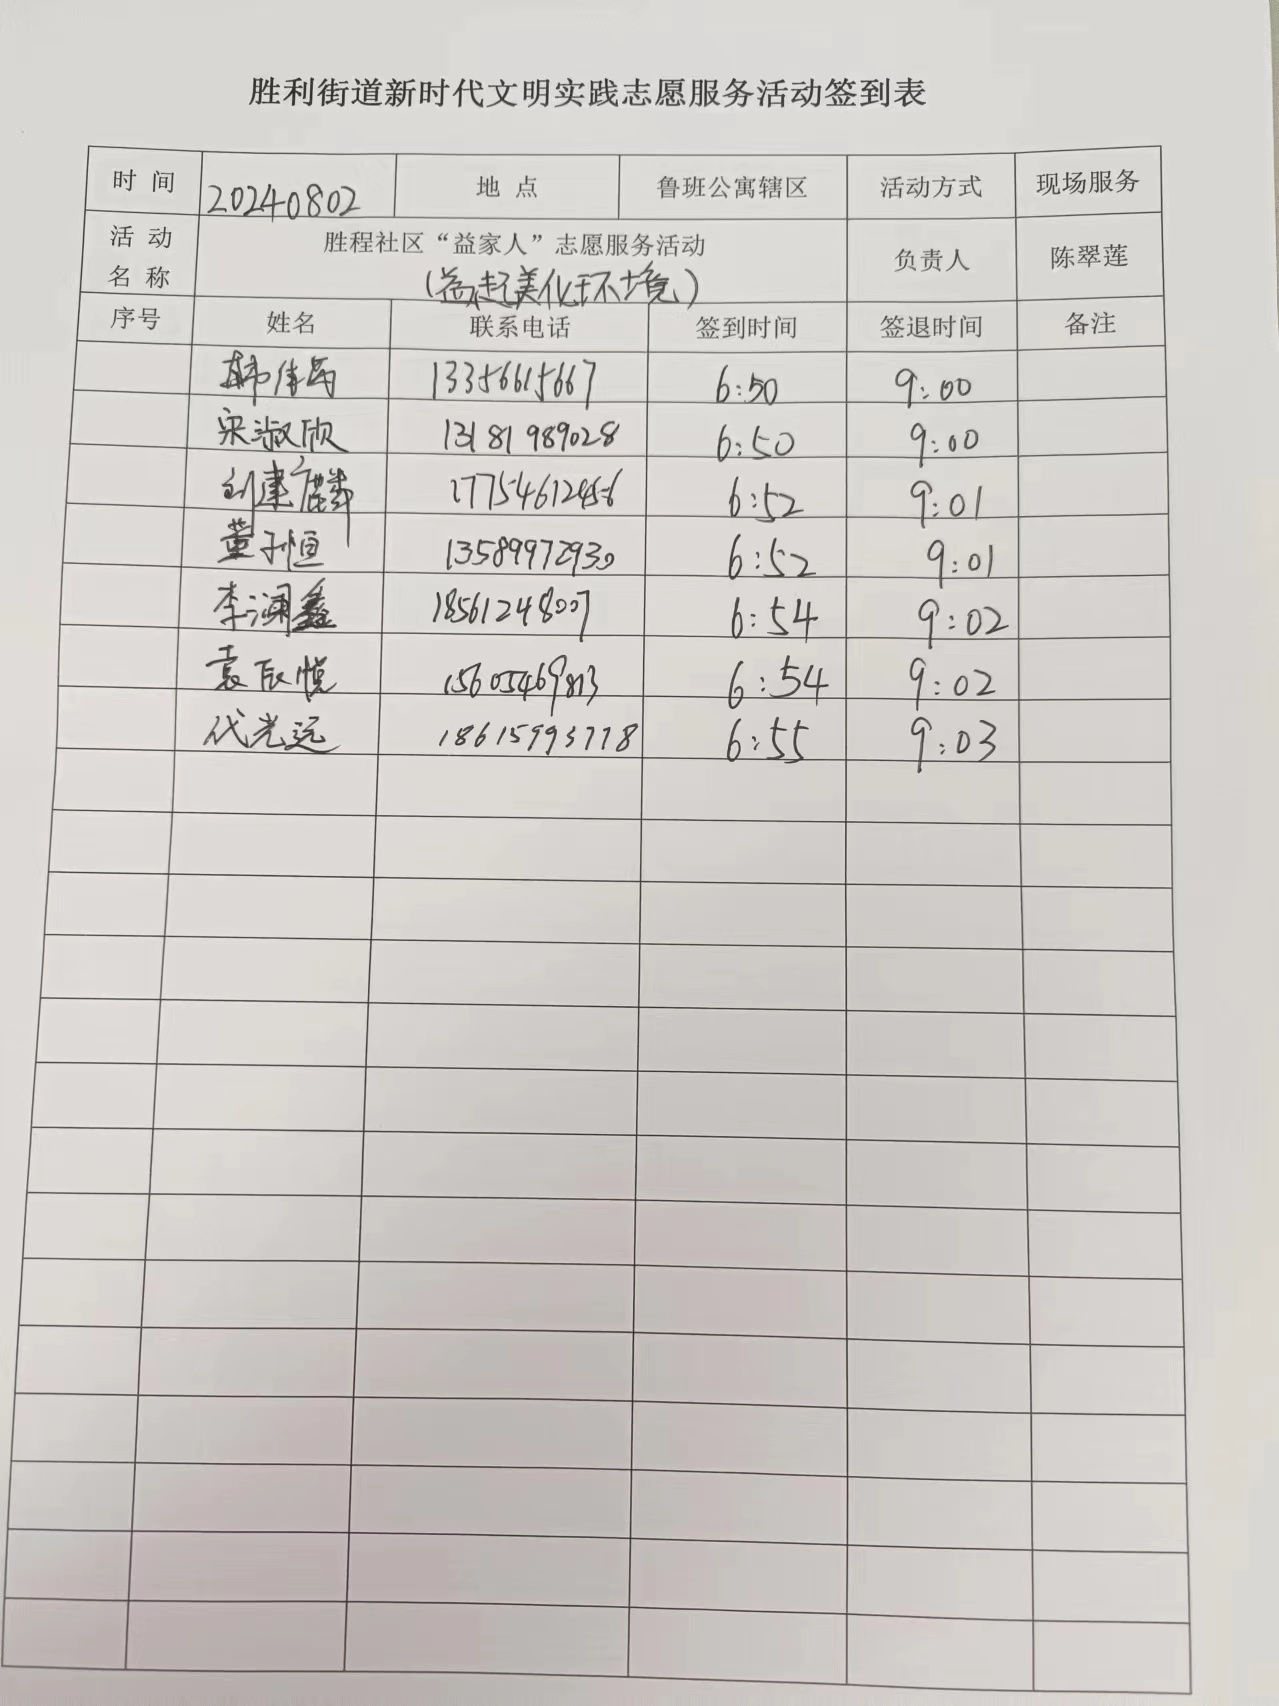 胜利街道新时代文明实践志愿服务活动签到表
时 间 20240802 地 点 鲁班公寓辖区 活动方式 现场服务
活 动 名 称 胜程社区“益家人”志愿服务活动 负责人 陈翠莲
(益起美化环境)
序号 姓名 联系电话 签到时间 签退时间 备注
韩佳 13356615667 6:50 9:00
宋淑欣 13181989028 6:50 9:00
刘建 6:52 9:01
董子恒 13589972930 6:52 9:01
李润鑫 18561248007 6:54 9:02
袁辰悦 15605469813 6:54 9:02
代光远 6:55 9:03